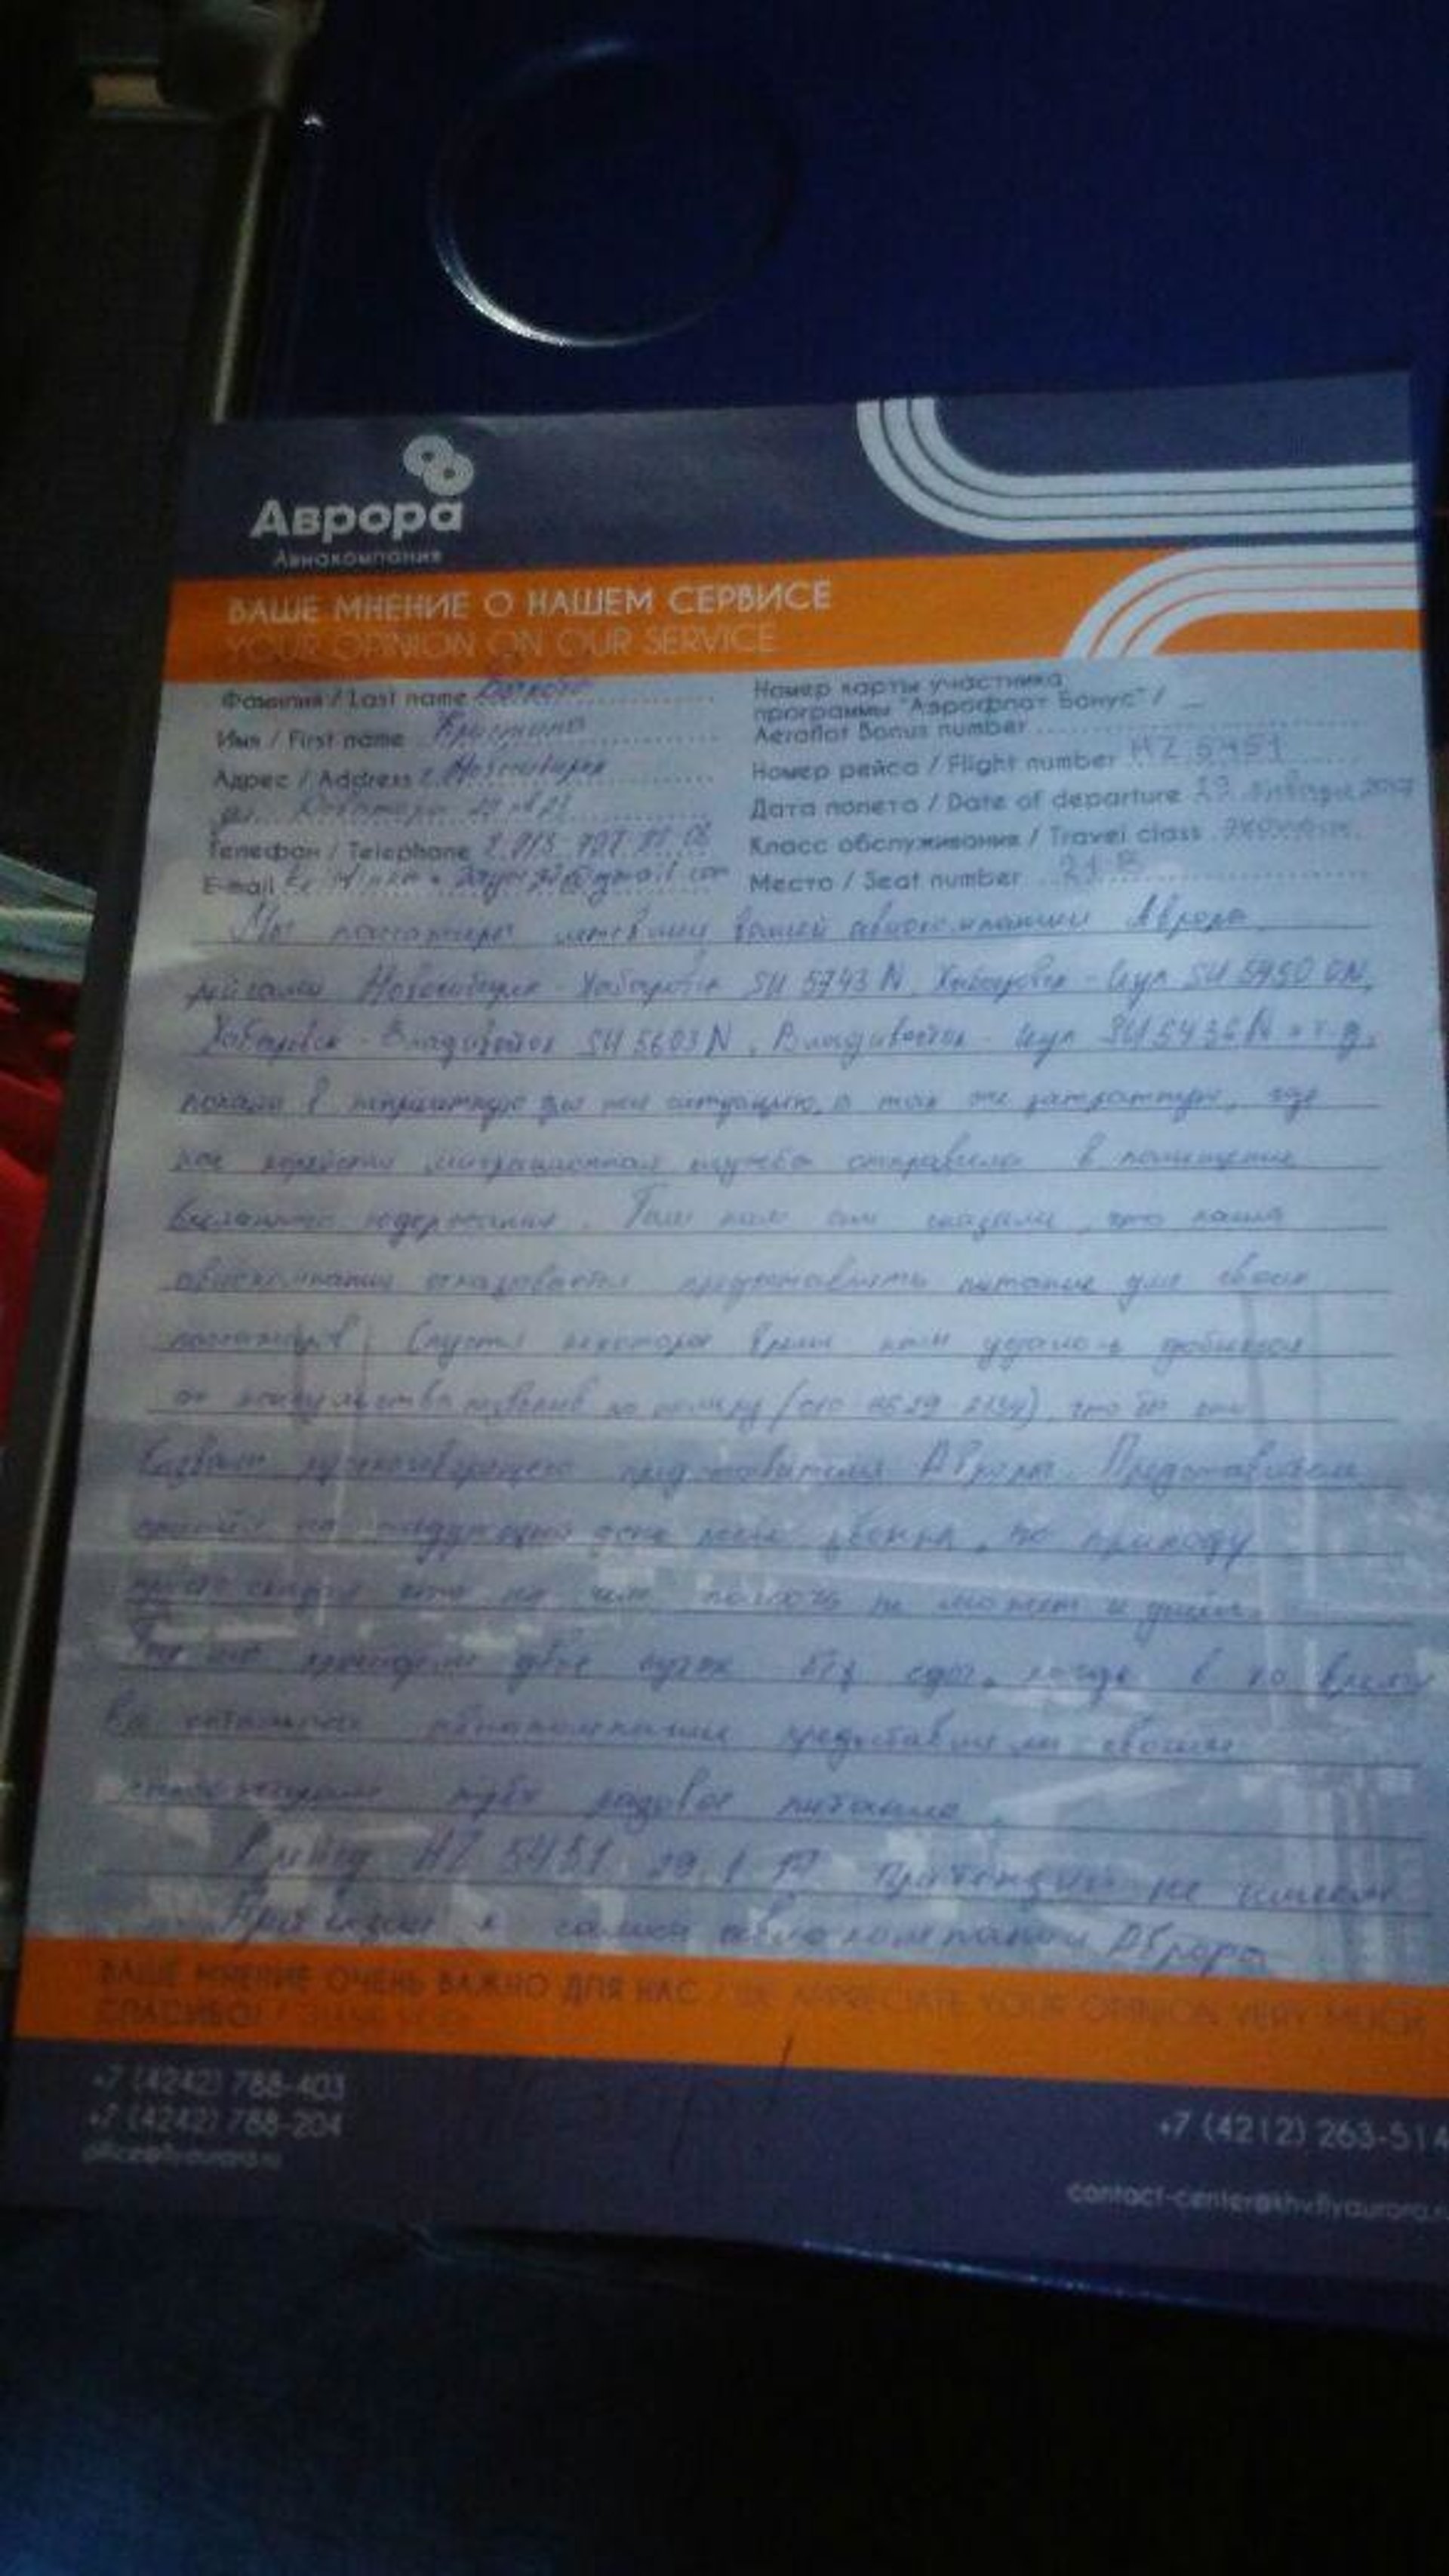 Аврора
Авиакомпания
ВАШЕ МНЕНИЕ О НАШЕМ СЕРВИСЕ
YOUR OPINION ON OUR SERVICE
Фамилия / Last name
Имя / First name Кристина
Адрес / Address г. Новосибирск
Телефон / Telephone
E-mail
Номер карты участника
программы "Аэрофлот Бонус" /
Aeroflot Bonus number
Номер рейса / Flight number HZ 5451
Дата полета / Date of departure 29 января 2017
Класс обслуживания / Travel class эконом
Место / Seat number 21 B
Мы пассажиры летевшие вашей авиакомпании Аврора,
рейсами Новосибирск - Хабаровск SU 5743 N, Хабаровск - Сеул SU 5450 ON,
Хабаровск - Владивосток SU 5603 N, Владивосток - Сеул SU 5436 N и т.д.
попали в неприятную для нас ситуацию, а так же где
нас миграционная служба отправила в помещение
содержания. Там нам сказали, что наша
авиакомпания отказывается предоставлять питание для своих
пассажиров. Спустя некоторое время нам удалось добиться
от консульства позвонив по номеру (010 9529 2134), что бы они
вызвали русскоговорящего представителя Аврора. Представитель
пришёл на следующий день после звонка, по приходу
просто сказал что не чем помочь не может и ушёл.
Так же двое суток без еды, когда в то время
Все остальные авиакомпании предоставили своим
пассажирам трёх разовое питание.
К рейсу HZ 5451 29.1.17 притензий не имеем
Притензии к самой авиакомпании Аврора
ВАШЕ МНЕНИЕ ОЧЕНЬ ВАЖНО ДЛЯ НАС / WE APPRECIATE YOUR OPINION VERY MUCH
СПАСИБО! / THANK YOU!
+7 (4242) 788-403
+7 (4242) 788-204
office@flyaurora.ru
+7 (4212) 263-514
contact-center@khv.flyaurora.r